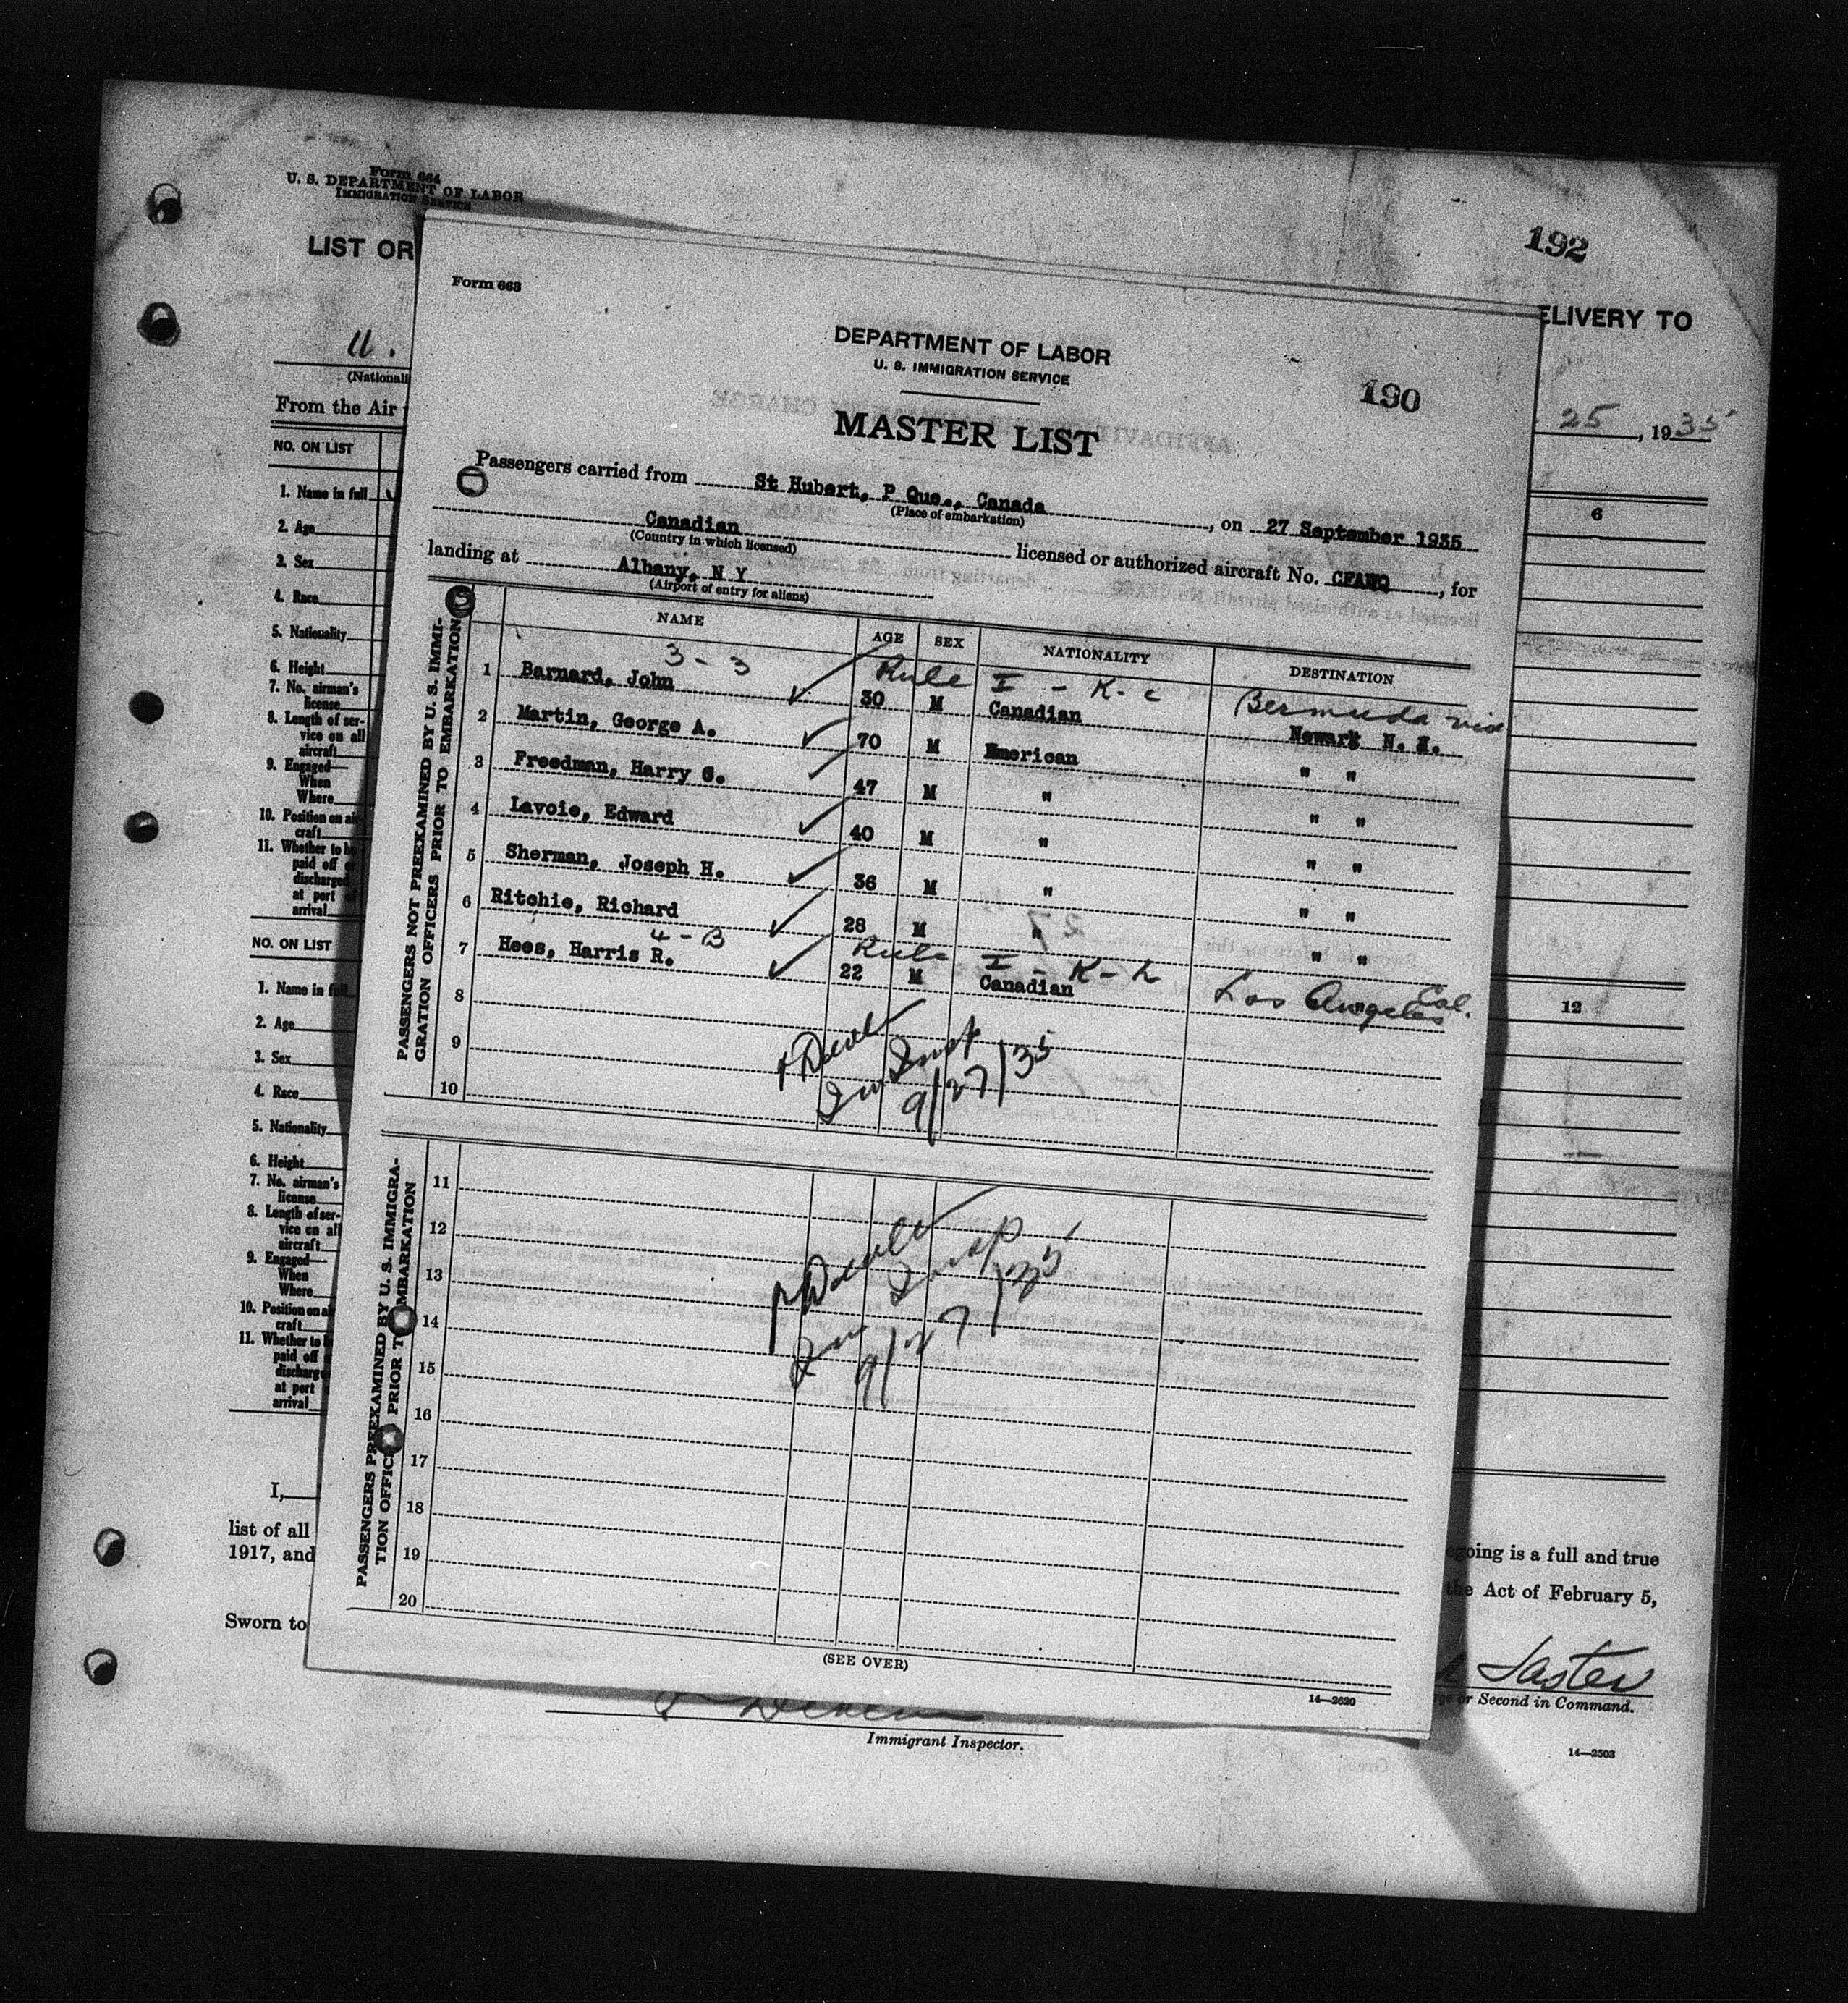 Form 664
U. S. DEPARTMENT OF LABOR
IMMIGRATION SERVICE
192
LIST OR
ELIVERY TO
U.
(Nationali
25, 1935
From the Air
NO. ON LIST
6
1. Name in full
2. Age
3. Sex
4. Race
5. Nationality
6. Height
7. No. airman's
license
8. Length of ser-
vice on all
aircraft
9. Engaged—
When
Where
10. Position on air
craft
11. Whether to be
paid off
discharged
at port
arrival
NO. ON LIST
12
1. Name in full
2. Age
3. Sex
4. Race
5. Nationality
6. Height
7. No. airman's
license
8. Length of ser-
vice on all
aircraft
9. Engaged—
When
Where
10. Position on a
craft
11. Whether to b
paid off
discharg
at port
arrival
I,
list of all
1917, and
Sworn to
going is a full and true
the Act of February 5,
or Second in Command.
Immigrant Inspector.
14—2503
Form 663
DEPARTMENT OF LABOR
U. S. IMMIGRATION SERVICE
190
MASTER LIST
Passengers carried from St Hubert, P Que., Canada, on 27 September 1935
(Place of embarkation)
Canadian licensed or authorized aircraft No. CFAWQ, for
(Country in which licensed)
landing at Albany, N Y
(Airport of entry for aliens)
NAME AGE SEX NATIONALITY DESTINATION
PASSENGERS NOT PREEXAMINED BY U. S. IMMI-
GRATION OFFICERS PRIOR TO EMBARKATION
3-3 Rule I - K-c Bermuda via
1 Barnard, John 30 M Canadian Newark N. J.
2 Martin, George A. 70 M American " "
3 Freedman, Harry G. 47 M " " "
4 Lavoie, Edward 40 M " " "
5 Sherman, Joseph H. 36 M " " "
6 Ritchie, Richard 28 M " " "
4-B Rule I - K-L
7 Hees, Harris R. 22 M Canadian Los Angeles Cal.
8
9
10
Insp
9/27/35
PASSENGERS PREEXAMINED BY U. S. IMMIGRA-
TION OFFICERS PRIOR TO EMBARKATION
11
12
13
14
15
16
17
18
19
20
Insp
9/27/35
(SEE OVER)
14—2620